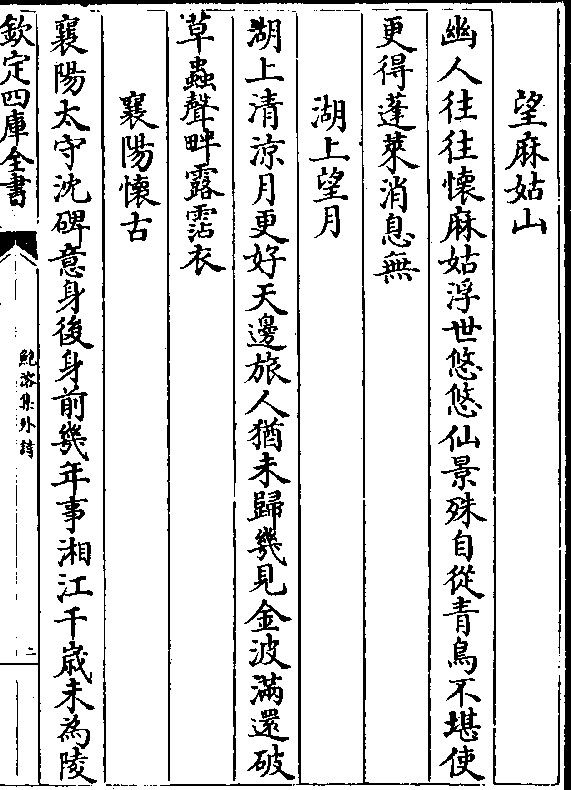 望麻姑山
幽人往往懷麻姑浮世悠悠仙景殊自從青鳥不堪使
更得蓬萊消息無
湖上望月
湖上清涼月更好天邊旅人猶未歸幾見金波滿還破
草蟲聲畔露霑衣
襄陽懷古
襄陽太守沈碑意身後身前幾年事湘江千歳未為陵
欽定四庫全書
鮑溶集外詩
二